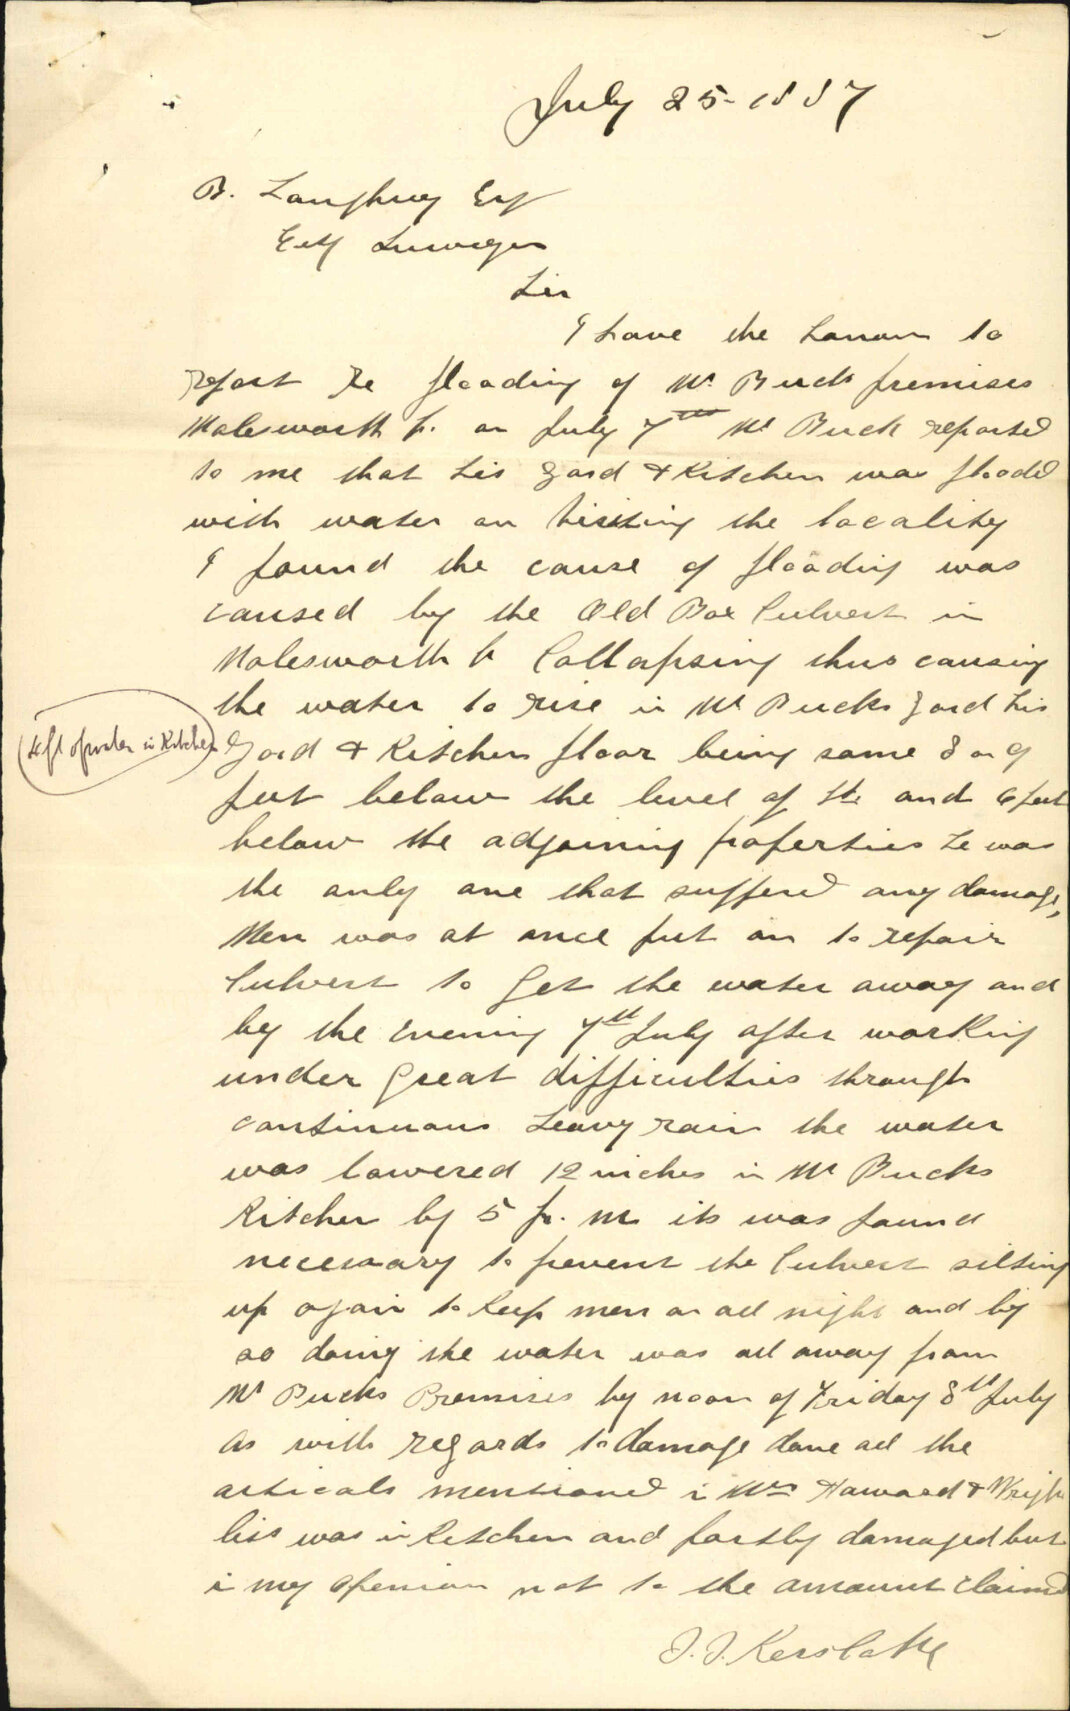 July 25 - 1887
B. Langhrey Esq
City Surveyor
Sir
I have the honour to
report re flooding of Mr Bucks premises
Molesworth St. on July 7th Mr Buck reported
to me that his yard & Kitchen was floodd
with water on visiting the locality
I found the cause of flooding was
caused by the Old Box Culvert in
Molesworth St Collapsing thus causing
the water to rise in Mr Bucks yard his
(ft of water in Kitchen)
Yard & Kitchen floor being some 8 or 9
feet below the level of Ste and 6 feet
below the adjoining properties he was
the only one that suffered any damage,
Men was at once put on to repair
Culvert to get the water away and
by the Evening 7th July after working
under great difficulties through
continuous heavy rain the water
was lowered 12 inches in Mr Bucks
Kitchen by 5 p. m its was found
necessary to prevent the Culvert silting
up again to keep men on all night and by
so doing the water was all away from
Mr Bucks Premises by noon of Friday 8th July
As with regards to damage done all the
articals mentioned i Mrs Haward & Wright
liss was in Kitchen and partly damaged but
i my openion not to the amount claimd
J. J. Kerslake